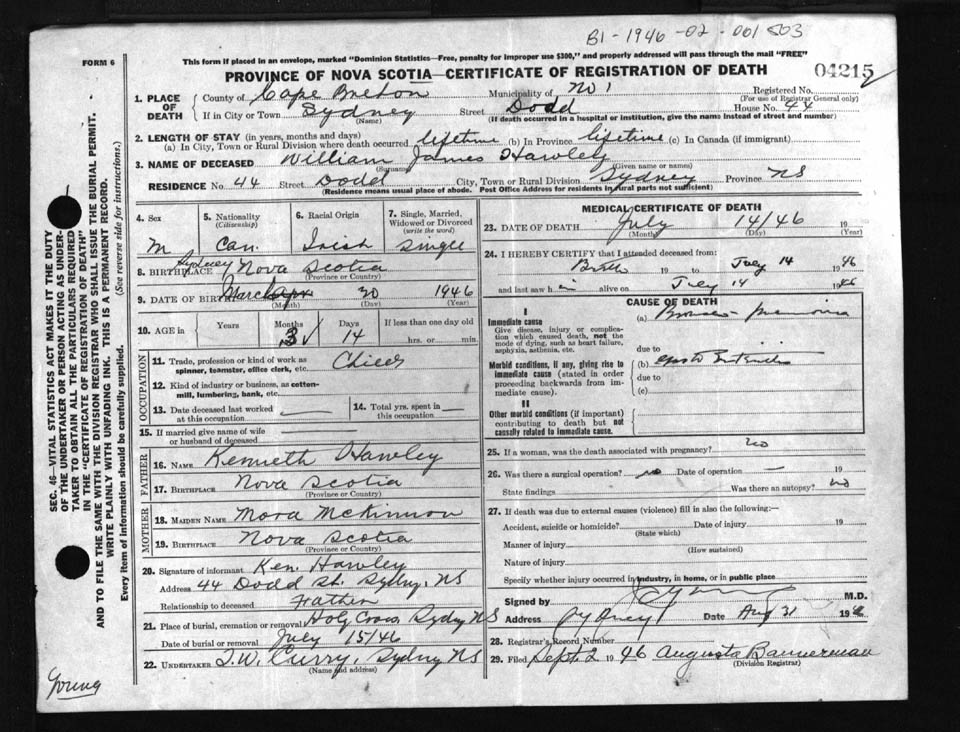 B1-1946-02-001503
FORM 6
This form if placed in an envelope, marked "Dominion Statistics—Free, penalty for improper use $300," and properly addressed will pass through the mail "FREE"
PROVINCE OF NOVA SCOTIA—CERTIFICATE OF REGISTRATION OF DEATH
04215
1. PLACE OF DEATH
County of Cape Breton Municipality of No 1 Registered No.
(For use of Registrar General only)
If in City or Town Sydney Street Dodd House No. 44
(Name) (If death occurred in a hospital or institution, give the name instead of street and number)
2. LENGTH OF STAY (in years, months and days)
(a) In City, Town or Rural Division where death occurred lifetime (b) In Province lifetime (c) In Canada (if immigrant)
3. NAME OF DECEASED William James Hawley
(Surname) (Given name or names)
RESIDENCE No. 44 Street Dodd City, Town or Rural Division Sydney Province NS
(Residence means usual place of abode. Post Office Address for residents in rural parts not sufficient)
4. Sex
M
5. Nationality
(Citizenship)
Can.
6. Racial Origin
Irish
7. Single, Married, Widowed or Divorced
(write the word)
Single
8. BIRTHPLACE Sydney Nova Scotia
(Province or Country)
9. DATE OF BIRTH March 30 1946
(Month) (Day) (Year)
10. AGE in Years Months Days If less than one day old
3 14 hrs. or min.
OCCUPATION
11. Trade, profession or kind of work as spinner, teamster, office clerk, etc. Child
12. Kind of industry or business, as cotton-mill, lumbering, bank, etc.
13. Date deceased last worked at this occupation
14. Total yrs. spent in this occupation
15. If married give name of wife or husband of deceased
FATHER
16. NAME Kenneth Hawley
17. BIRTHPLACE Nova Scotia
(Province or Country)
MOTHER
18. MAIDEN NAME Mora McKinnon
19. BIRTHPLACE Nova Scotia
(Province or Country)
20. Signature of informant Ken. Hawley
Address 44 Dodd St. Sydney, NS
Relationship to deceased Father
21. Place of burial, cremation or removal Holy Cross Sydney NS
Date of burial or removal July 15/46
22. UNDERTAKER T.W. Curry, Sydney NS
(Name and address)
MEDICAL CERTIFICATE OF DEATH
23. DATE OF DEATH July 14/46 19
(Month) (Day) (Year)
24. I HEREBY CERTIFY that I attended deceased from:
Birth 19 to July 14 1946
and last saw h im alive on July 14 1946
CAUSE OF DEATH
I
Immediate cause
Give disease, injury or complication which caused death, not the mode of dying, such as heart failure, asphyxia, asthenia, etc.
(a) Broncho-pneumonia
due to
Morbid conditions, if any, giving rise to immediate cause (stated in order proceeding backwards from immediate cause).
(b)
due to
(c)
II
Other morbid conditions (if important) contributing to death but not causally related to immediate cause.
25. If a woman, was the death associated with pregnancy? no
26. Was there a surgical operation? no Date of operation — 19
State findings Was there an autopsy? no
27. If death was due to external causes (violence) fill in also the following:—
Accident, suicide or homicide? Date of injury 19
(State which)
Manner of injury
(How sustained)
Nature of injury
Specify whether injury occurred in industry, in home, or in public place
Signed by M.D.
Address Sydney Date Aug 31 194
28. Registrar's Record Number
29. Filed Sept 2 1946 Augusta Bannerman
(Division Registrar)
SEC. 46—VITAL STATISTICS ACT MAKES IT THE DUTY
OF THE UNDERTAKER OR PERSON ACTING AS UNDER-
TAKER TO OBTAIN ALL THE PARTICULARS REQUIRED
IN THE "CERTIFICATE OF REGISTRATION OF DEATH"
AND TO FILE THE SAME WITH THE DIVISION REGISTRAR WHO SHALL ISSUE THE BURIAL PERMIT.
WRITE PLAINLY WITH UNFADING INK. THIS IS A PERMANENT RECORD.
Every item of information should be carefully supplied. (See reverse side for instructions.)
Young